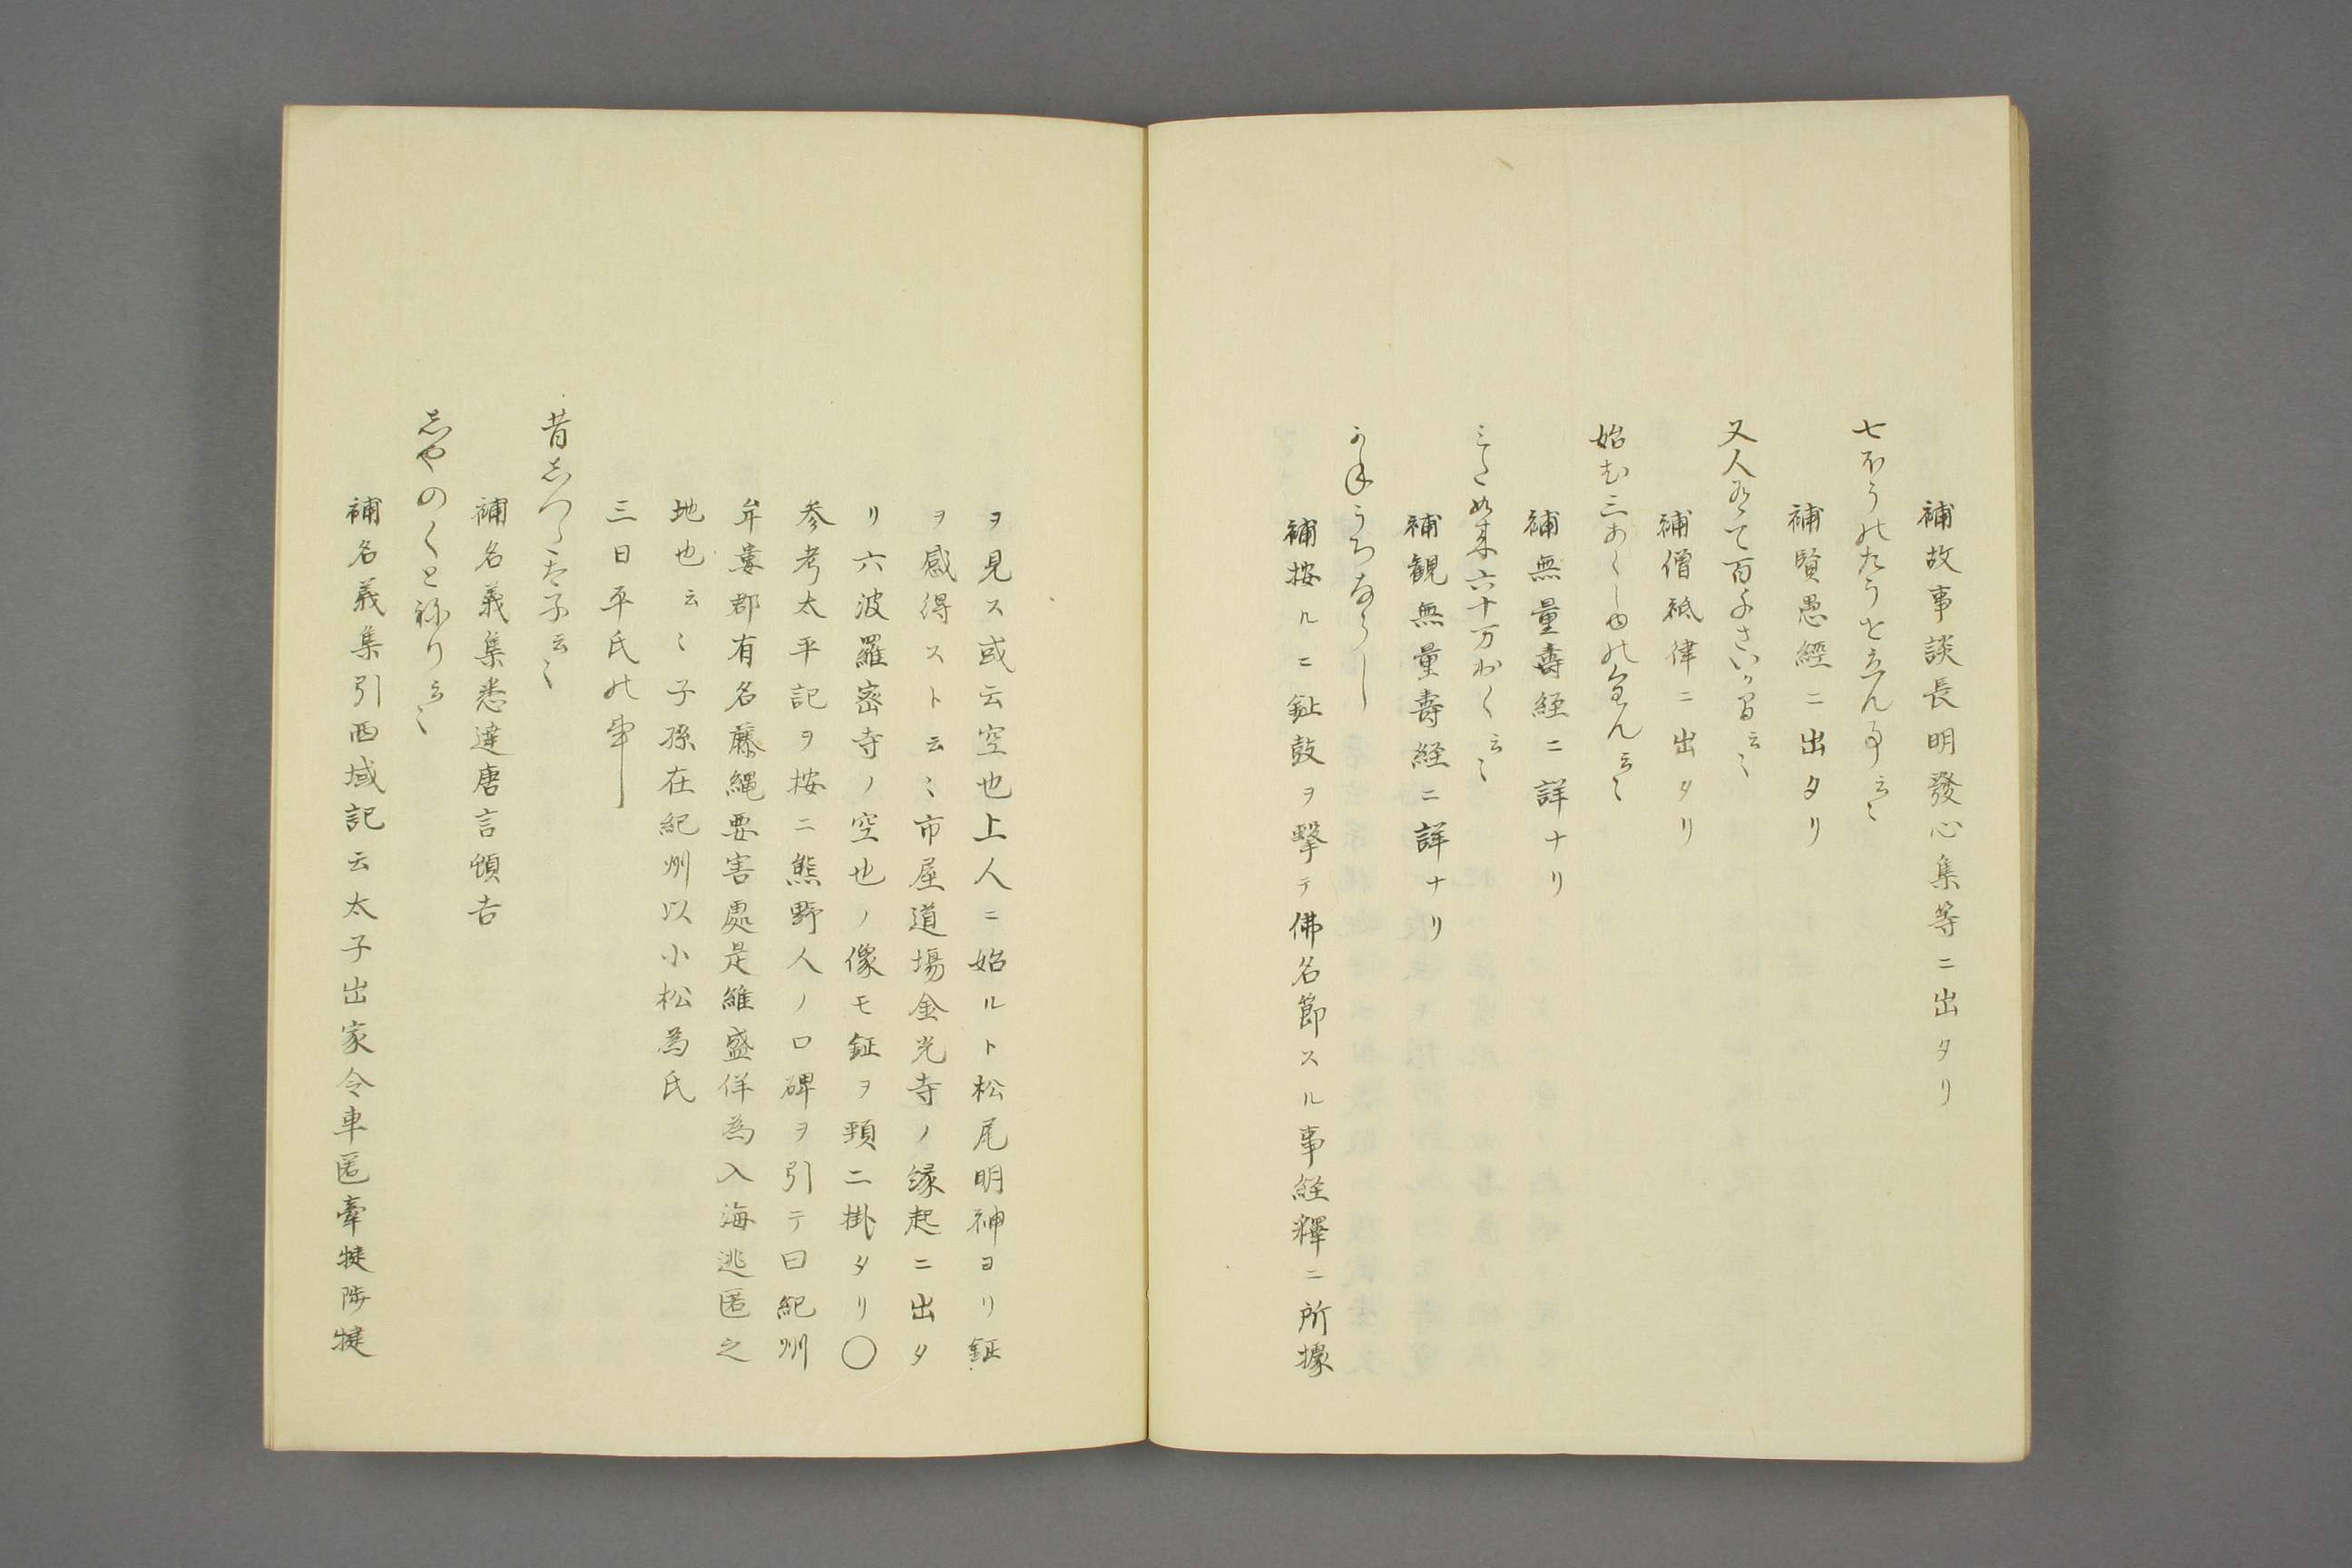 補故事談長明發心集等ニ出タリ
七ほうのたうを立ん事云〻
補賢愚經ニ出タリ
又人有て百千さいか間云〻
補僧祗律ニ出タリ
始む三あくしゆの
補無量壽経ニ詳ナリ
みた如来六十万おく云〻
補観無量壽経ニ詳ナリ
かねうちならし
補按ルニ鉦鼓ヲ擊テ佛名節スル事経釋ニ所據
ヲ見ス或云空也上人ニ始ルト松尾明神ヨリ鉦
ヲ感得ストス云〻市屋道場金光寺ノ縁起ニ出タ
リ六波羅密寺ノ空也ノ像モ鉦ヲ頚ニ掛タリ〇
参考太平記ヲ按ニ熊野人ノ口碑ヲ引テ曰紀州
牟婁郡有名藤縄要害處是維盛佯為入海逃匿之
地也云〻子孫在紀州以小松為氏
三日平氏の事
昔しつた太子云〻
補名義集悉達唐言頓吉
しやのくとねり云〻
補名義集引西域記云太子出家令車匿牽犍陟犍